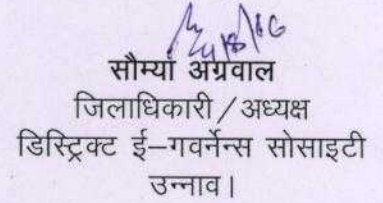 सौम्या अग्रवाल
जिलाधिकारी / अध्यक्ष
डिस्ट्रिक्ट ई–गवर्नेन्स सोसाइटी
उन्नाव।